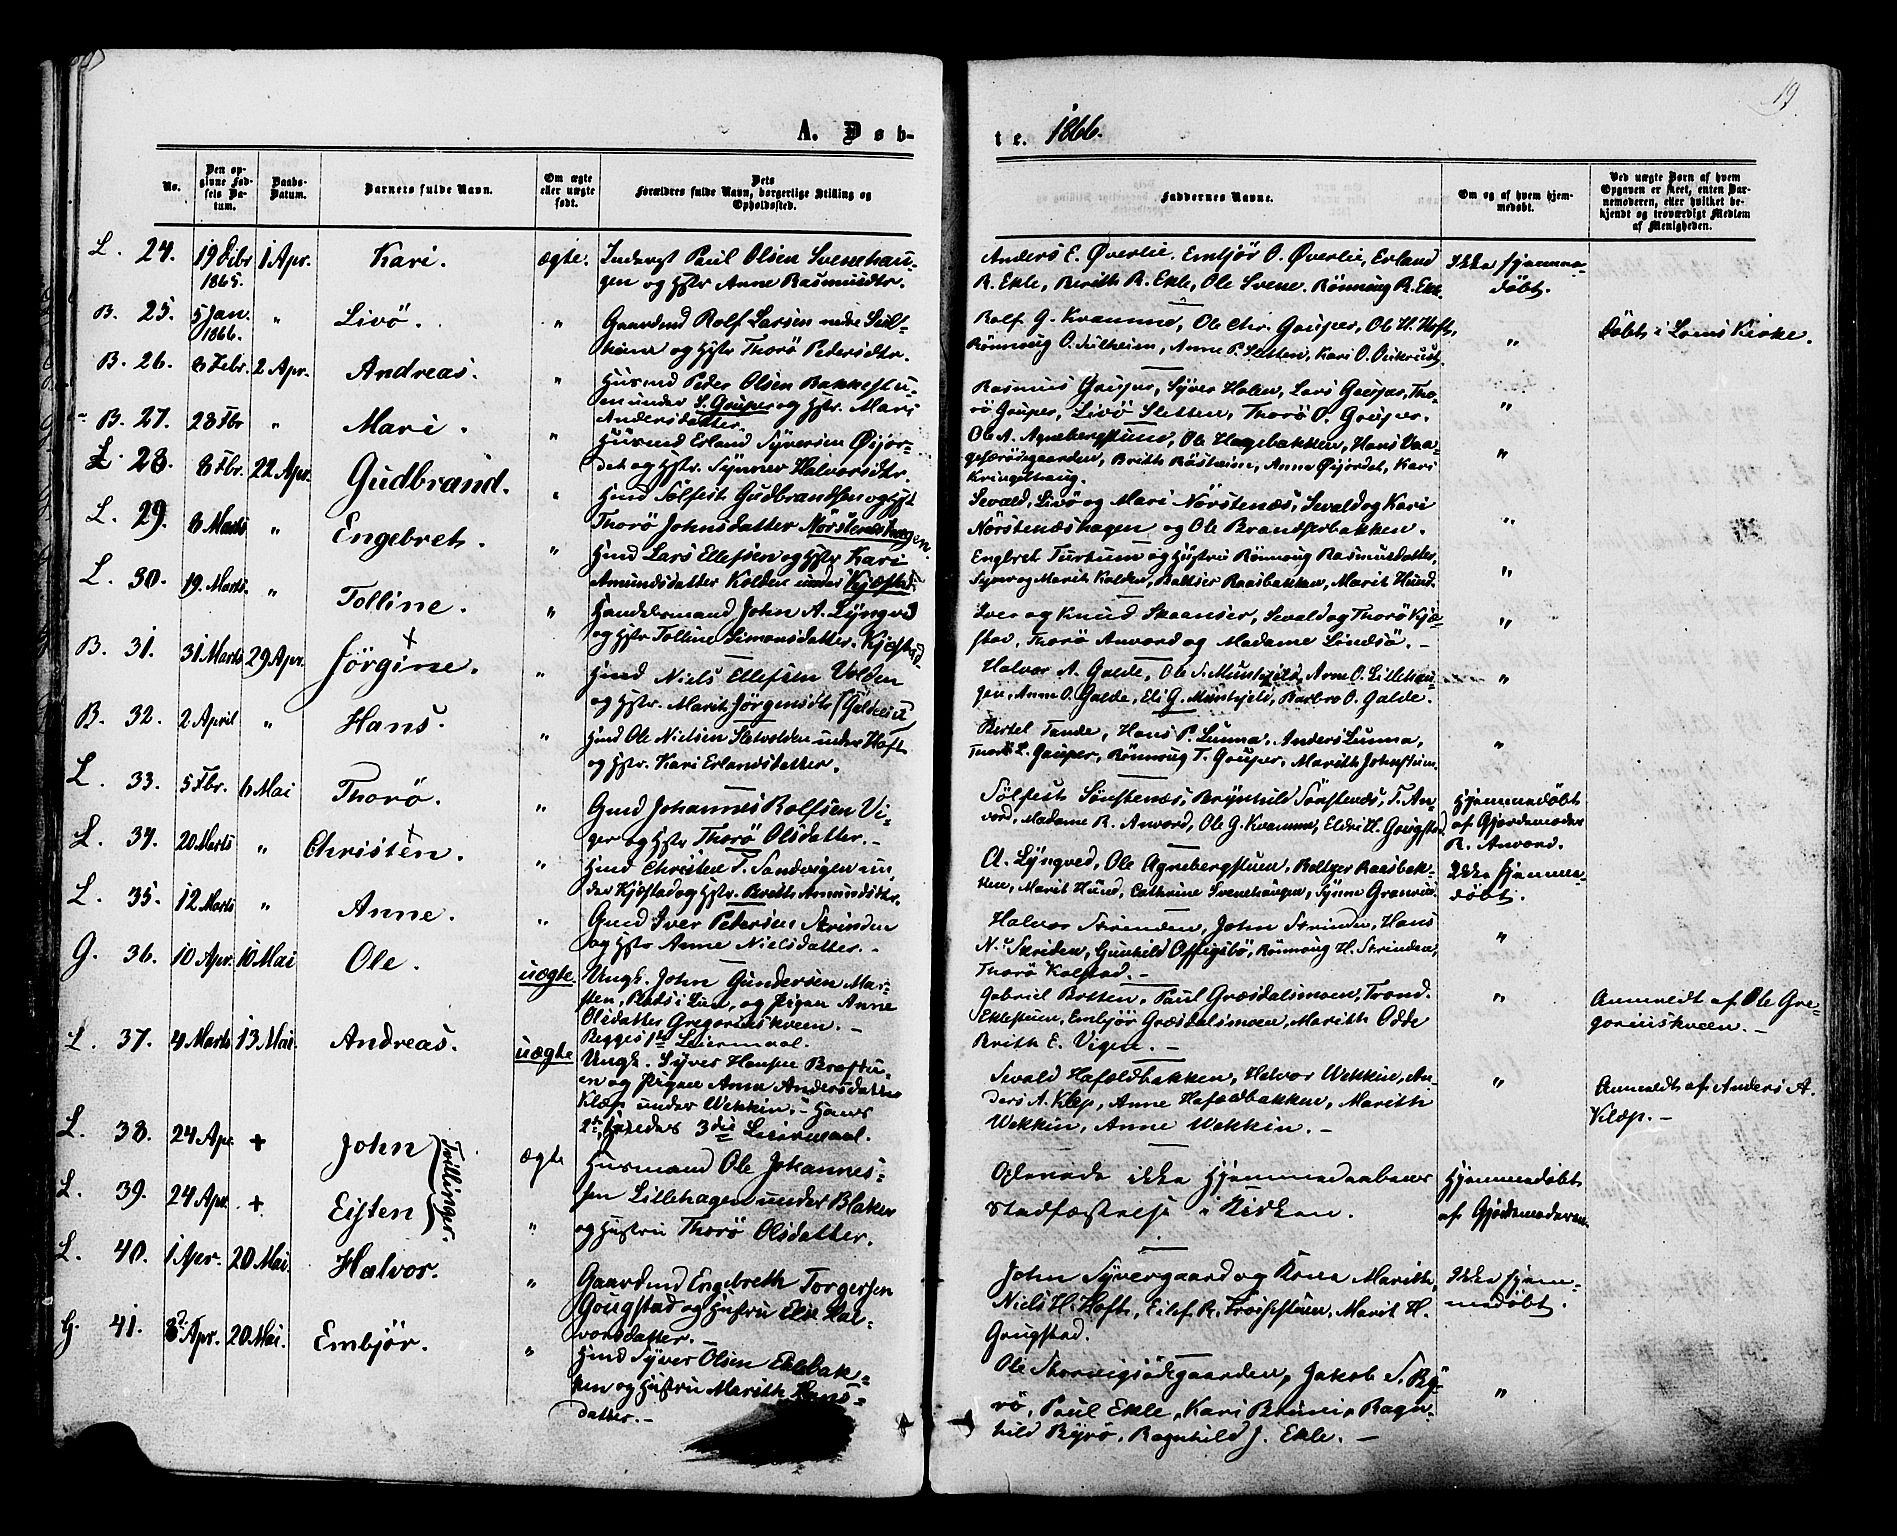 19
A. Døb-
te. 1866.
No.
Den op-
givne Fød-
sels Da-
tum.
Daabs-
Datum.
Barnets fulde Navn.
Om ægte
eller uægte
født.
Dets
Forældres fulde Navn, borgerlige Stilling og
Opholdssted.
Faddernes Navne.
Om og af hvem hjem-
medøbt.
Ved uægte Børn af hvem
Opgaven er skeet, enten Bar-
nemoderen, eller hvilket be-
kjendt og troværdigt Medlem
af Menigheden.
L. 24. 19 Dcbr 1865. 1 Apr. Kari. ægte.
Inderst Paul Olsen Svenehau-
gen og Hstr Anne Rasmusdtr.
Anders E. Øverlie. Embjør O. Øverlie, Erland
R. Ekle, Berith R. Ekle, Ole Svene. Rønnoug R. Ekle
Ikke hjemme-
døbt.
B. 25. 5 Jan. 1866. " Livø. "
Gaardmd Rolf Larsen nedre Sul-
heim og Hstr Thorø Pedersdtr.
Rolf G. Kvamme, Ole Chr. Goupør, Ole H. Hoft,
Rønnoug O. Sulheim, Anne P. Sletten, Kari O.
"
Døbt i Loms Kirke.
B. 26. 8 Febr. 2 Apr. Andreas. "
Husmd Peder Olsen Bakkestu-
en under S. Goupør og Hstr. Mari
Andersdatter.
Rasmus Goupør, Syver Holen, Lars Goupør, Tho-
rø Goupør, Livø Sletten, Thorø O. Goupør.
"
B. 27. 28 Fbr " Mari. "
Husmd Erland Syversen Øijor-
det og Hstr. Synnev Halvorsdtr.
Ole A. Agnebergstuen, Ole Hagebakken, Hans Vaa-
gesærødegaarden, Brith Røsheim, Anne Øijordet, Kari
Kringelhaug.
"
L. 28. 8 Fbr. 22 Apr. Gudbrand. "
Hmd Sølfest Gudbrandsen og Hst
Thorø Johnsdatter Nørstenæshagen.
Sevald, Livø og Mari Nørstenæs, Sevald og Kari
Nørstenæshagen og Ole Brandserbakken.
"
L. 29. 8 Marts " Engebret. "
Hmd Lars Ellefsen og Hstr Kari
Amundsdatter Kolden under Kjæstad.
Engbret Turtum og Hustru Rønnoug Rasmusdatter,
Synn og Marit Kolden, Baltser Raasbakken, Marit Hund.
"
L. 30. 19. Marts. " Tolline. "
Handelsmand John A. Lyngved
og Hstr Tolline Simonsdatter. Kjæstad
Iver og Knud Skaanser, Sevald og Thorø Kjæ-
stad, Thorø Anvord og Madame Lindsø. —
"
B. 31. 31 Marts 29 Apr. Jørgine. "
Hmd Niels Ellefsen Volden
og Hstr. Marit Jørgensdtr (Galdeiu
Halvor A. Galde, Ole S. Munkjeld, Anne O. Lillehau-
gen, Anne O. Galde, Eli G. Munkjeld, Barbro O. Galde.
"
B. 32. 2 April " Hans. "
Hmd Ole Nielsen Sletvolden under Hoft
og Hstr. Kari Erlandsdatter.
Bertel Tande, Hans P. Lunna. Anders Lunna,
Thorø L. Goupør, Rønnoug T. Goupør, Marith Johnstuen.
"
L. 33. 5 Fbr. 6 Mai Thorø. "
Gmd Johannes Rolfsen Vi-
ger og Hstr Thorø Olsdatter. —
Sølfest Sønstenæs, Brynhild Sønstenæs, T. An-
vord, Madame R. Anvord, Ole G. Kvamme, Eldri H. Gougstad.
Hjemmedøbt
af Gjordemoder
R. Anvord.
L. 34. 20 Marts " Christen. "
Hmd Christen T. Sandvigen un-
der Kjæstad og Hstr. Brith Amundsdtr.
A. Lyngved, Ole Agnebergstuen, Baltzer Raasbak-
ken, Marit Hund, Cathrine Svenehaugen, Synne
Ikke hjemme-
døbt.
L. 35. 12 Marts " Anne. "
Gmd Iver Petersen Skrinden
og Hstr Anne Nielsdatter. —
Halvor Skrinden, John Skrinden, Hans
N. Skriden, Gunhild Offigsbø, Rønnoug H. Skrinden,
Thorø Kolstad. —
"
G. 36. 10 Apr. 10 Mai Ole. uægte.
Ungk. John Gundersen Mar-
sten, Plads i Lom, og Pigen Anne
Olsdatter Gregoriuskveen. —
Begges 1ste Leiermaal.
Gabriel Botten, Paul Græsdalsmoen, Trond
Eklestuen, Embjør Græsdalsmoen, Marith Odde
Brith E. Vigen. —
"
Anmeldt af Ole Gre-
goriuskveen. —
L. 37. 4 Marts 13 Mai. Andreas. uægte
Ungk. Syver Hansen Bræstu-
en og Pigen Anne Andersdatter
Klæp under Wekkin, — Hans
2det, hendes 3die Leiermaal.
Sevald Hafoldbakken, Halvor Wekkin, An-
ders A. Klep, Anne Hafoldbakken, Marith
Wekkin, Anne Wekkin. —
"
Anmeldt af Anders A.
Klæp. —
L. 38. 24 Apr. + John
Tvillinger.
ægte
Husmand Ole Johannes-
sen Lillehagen under Blaker
og Hustru Thorø Olsdatter.
Oplevede ikke Hjemmedaabens
Stadfæstelse i Kirken.
Hjemmedøbt
af Gjordemoderen.
L. 39. 24 Apr. + Eisten "
L. 40. 1 Apr. 20 Mai. Halvor. "
Gaardmd Engebreth Torgersen
Gougstad og Hustru Elie Hal-
vorsdatter. —
John Syvergaard og Kone Marith,
Niels H. Hoft, Eilef R. Frøisestuen, Marit H.
Gougstad.
Ikke hjem-
medøbt.
G. 41. 8 Apr. 20 Mai. Embjør. "
Hmd Syver Olsen Eklebak-
ken og Hustru Marith Hans-
datter. —
Ole Storvigsødegaarden, Jakob S. By-
rø, Paul Ekle, Kari Bruni, Ragn-
hild Byrø, Ragnhild J. Ekle. —
"